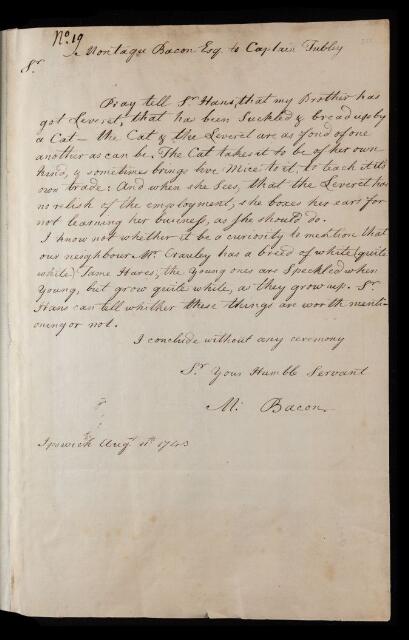 No. 19
Montagu Bacon Esq. to Captain Tubby
Sr.
Pray tell Sr. Hans, that my Brother has
got Leveret, that has been Suckled & bread up by
a Cat — the Cat & the Leveret are as fond of one
another as can be. The Cat takes it to be of her own
kind, & sometimes brings live Mice to it, to teach it its
own trade: And when she Sees, that the Leveret has
no relish of the employment, she boxes his ears for
not learning her business, as she should do.
I know not whether it be a curiosity to mention that
our neighbour Mr. Crawley has a breed of white (quite
white) Tame Hares; the Young ones are Speckled when
Young, but grow quite white, as they grow up. Sr.
Hans can tell whether these things are worth menti-
oning or not.
I conclude without any ceremony
Sr. Your Humble Servant
M: Bacon.
Ipswich Augt. 11th 1743